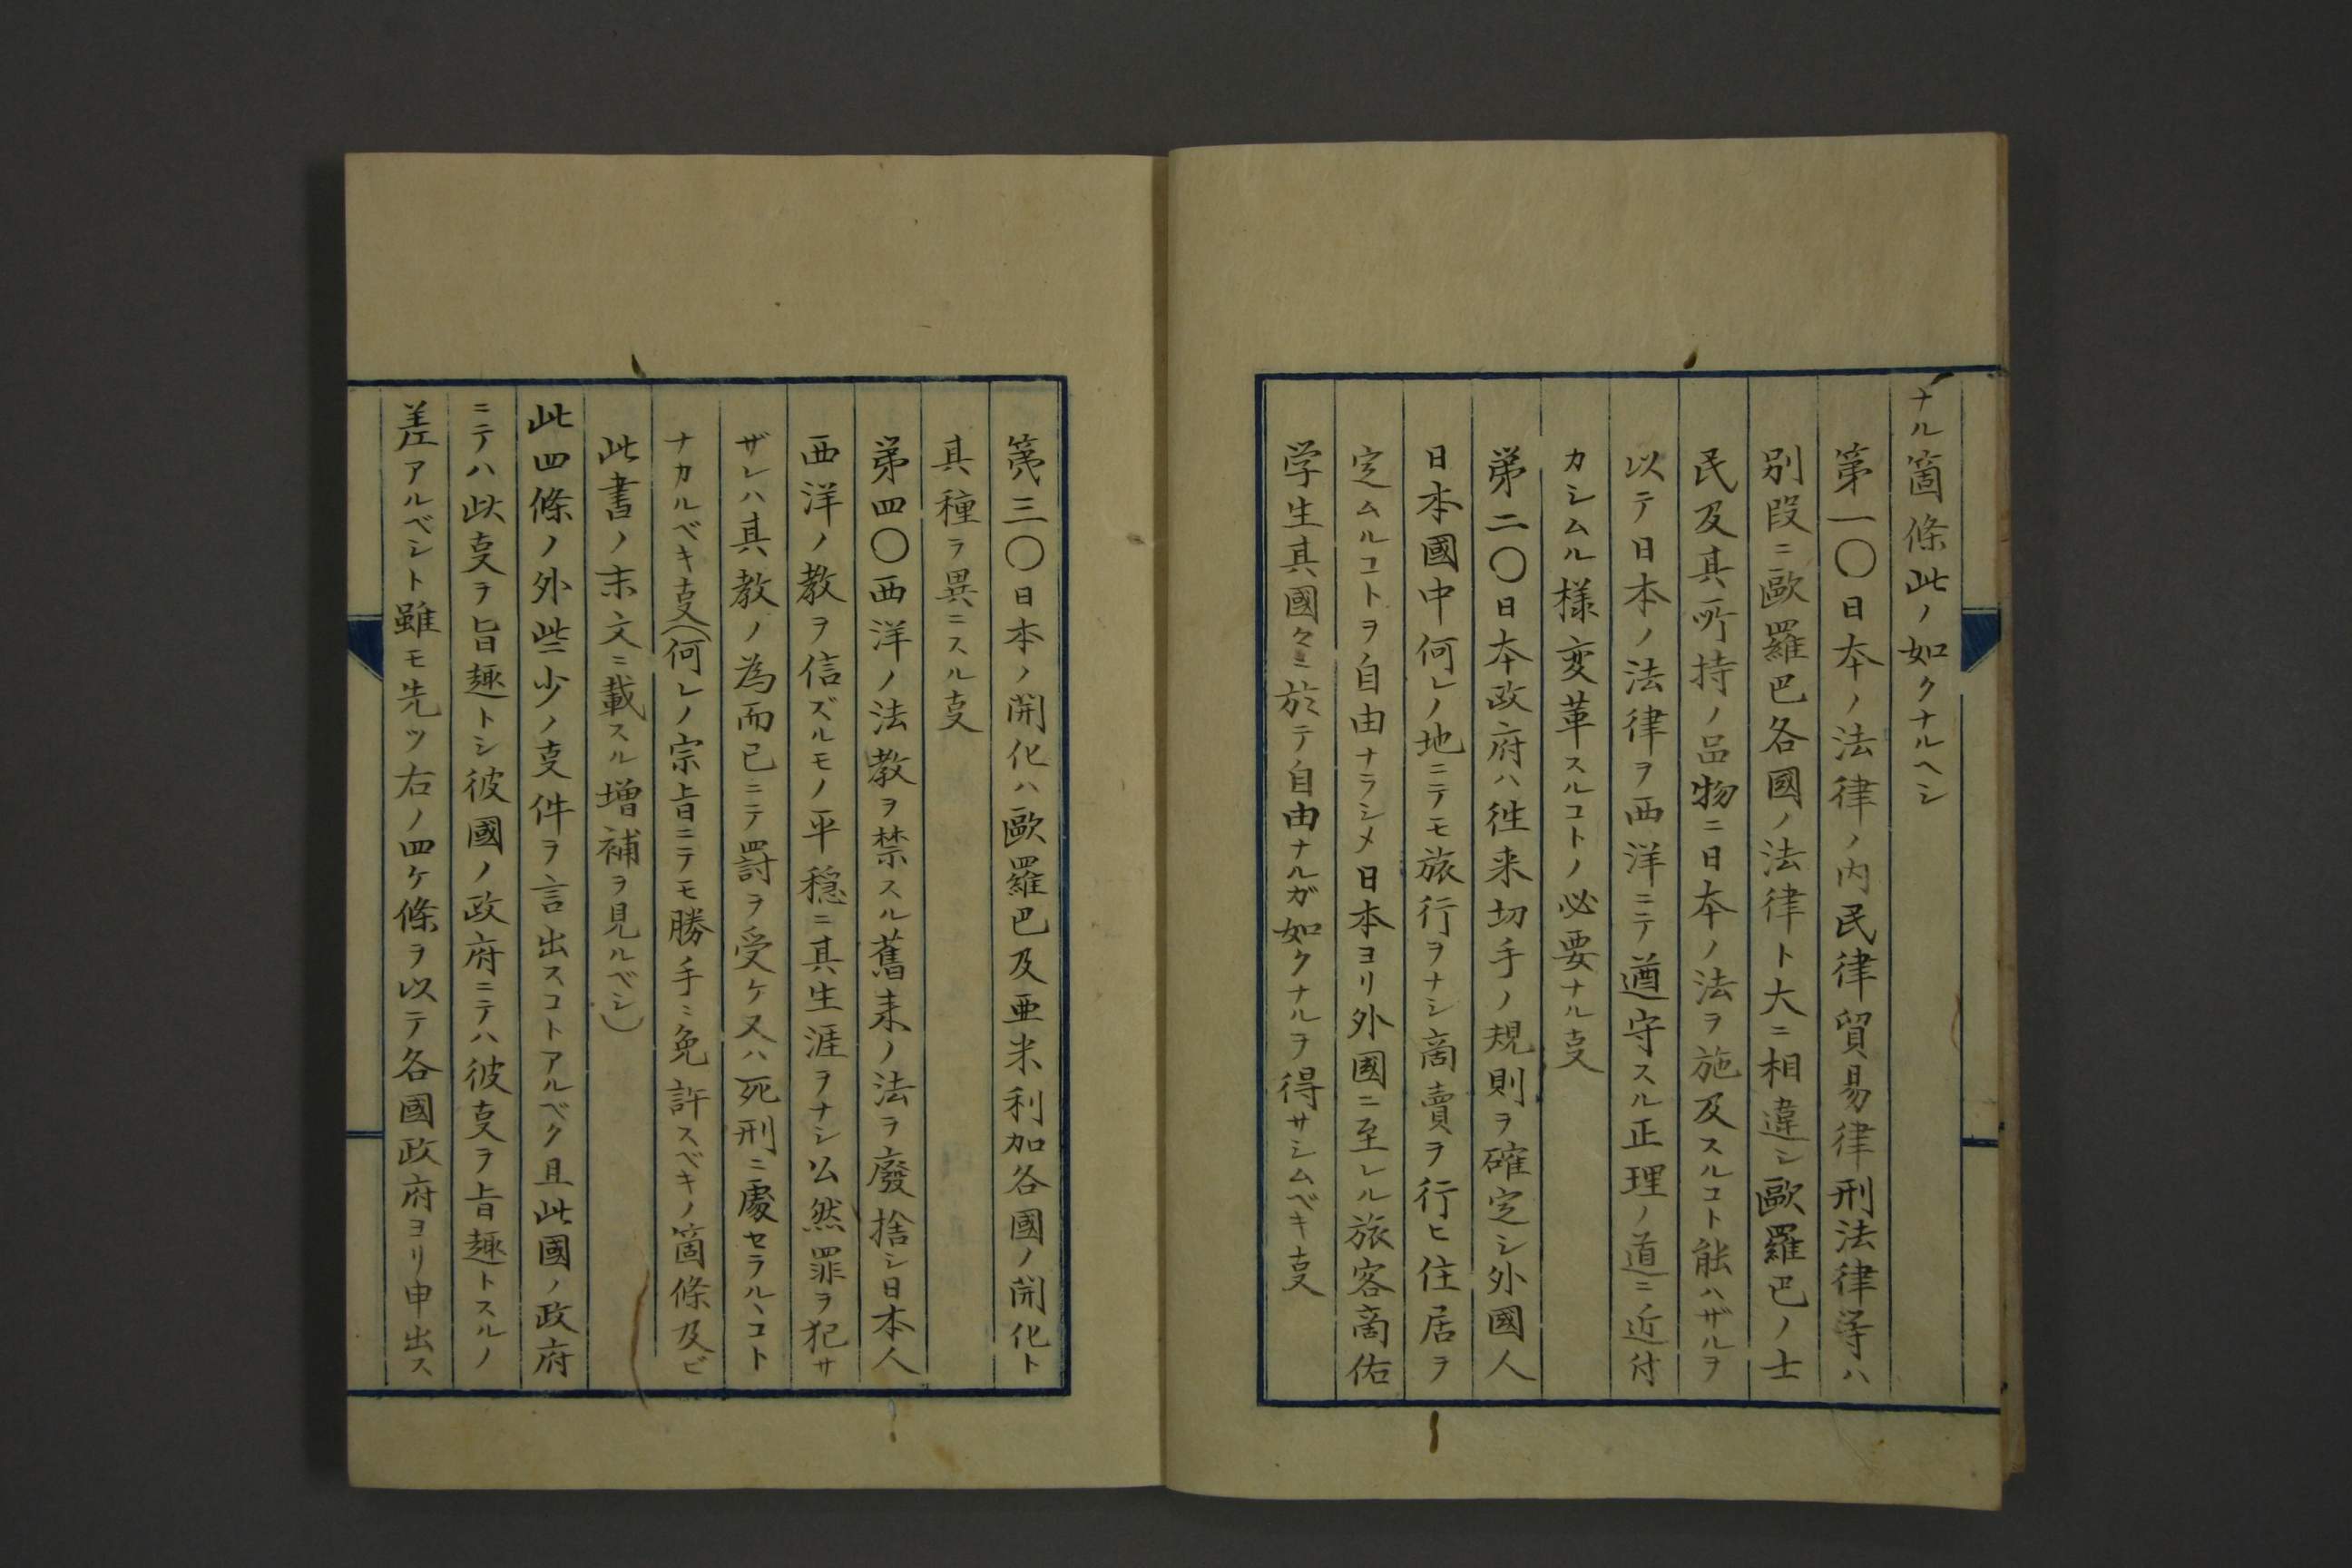 ナル箇條此ノ如クナルヘシ
第一〇日本ノ法律ノ内民律貿易律刑法律等ハ
別段ニ歐羅巴各國ノ法律ト大ニ相違シ歐羅巴ノ士
民及其所持ノ品物ニ日本ノ法ヲ施及スルコト能ハザルヲ
以テ日本ノ法律ヲ西洋ニテ遵守スル正理ノ道ニ近付
カシムル様変革スルコトノ必要ナル叓
第二〇日本政府ハ徃来切手ノ規則ヲ確定シ外國人
日本國中何レノ地ニテモ旅行ヲナシ商賣ヲ行ヒ住居ヲ
定ムルコトヲ自由ナラシメ日本ヨリ外國ニ至レル旅客商估
学生其國々ニ於テ自由ナルガ如クナルヲ得サシムベキ叓
第三〇日本ノ開化ハ歐羅巴及亜米利加各國ノ開化ト
其種ヲ異ニスル叓
第四〇西洋ノ法教ヲ禁スル舊来ノ法ヲ廢捨シ日本人
西洋ノ教ヲ信ズルモノ平穏ニ其生涯ヲナシ公然罪ヲ犯サ
ザレハ其教ノ為而已ニテ罸ヲ受ケ又ハ死刑ニ處セラルヽコト
ナカルベキ叓(何レノ宗旨ニテモ勝手ニ免許スベキノ箇條及ビ
此書ノ末文ニ載スル増補ヲ見ルベシ)
此四條ノ外些少ノ叓件ヲ言出スコトアルベク且此國ノ政府
ニテハ此叓ヲ旨趣トシ彼國ノ政府ニテハ彼叓ヲ旨趣トスルノ
差アルベシト雖モ先ツ右ノ四ケ條ヲ以テ各國政府ヨリ申出ス